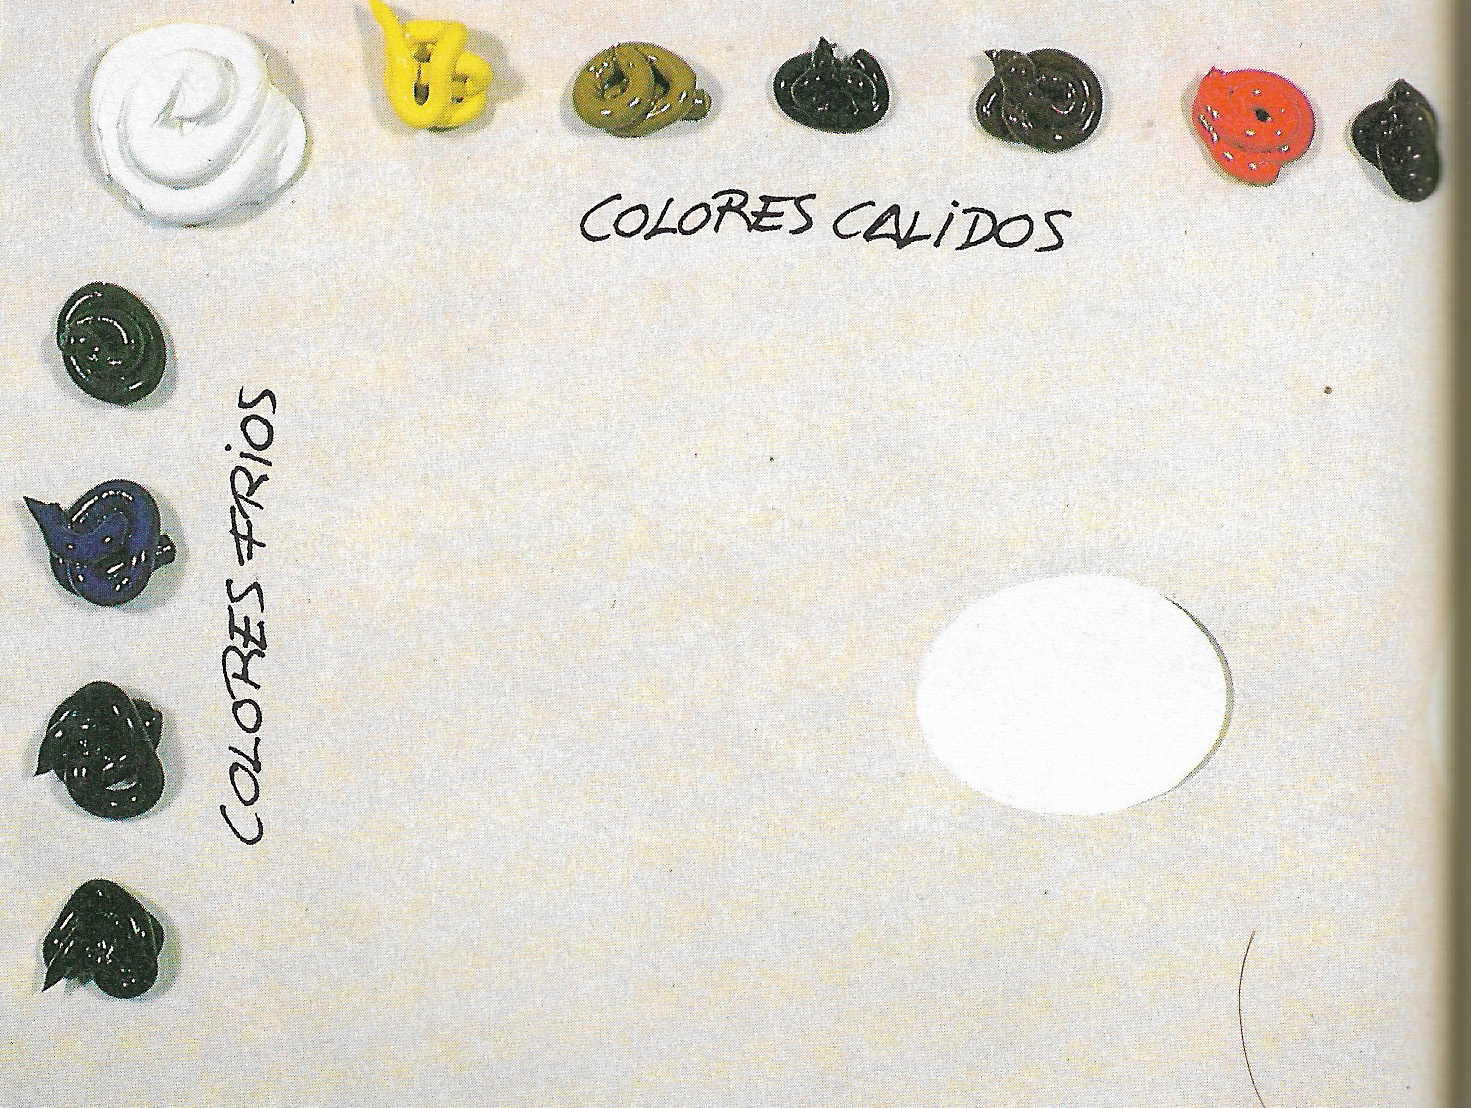 COLORES CALIDOS
COLORES FRIOS